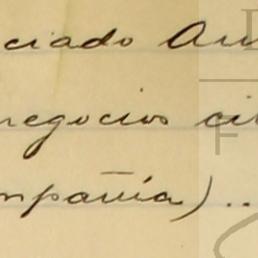 ciado Au
negocios ci
mpañía)..